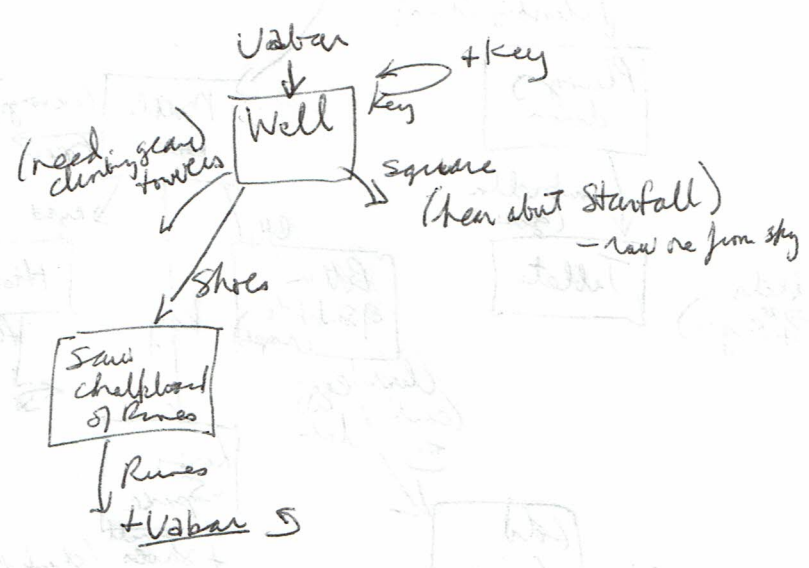 Vabar
+ Key
Key
Well
(need
climbing gear)
towers
square
(hear about Starfall)
- raw ore from sky
Shoes
Saw
chalkboard
of Runes
Runes
+ Vabar